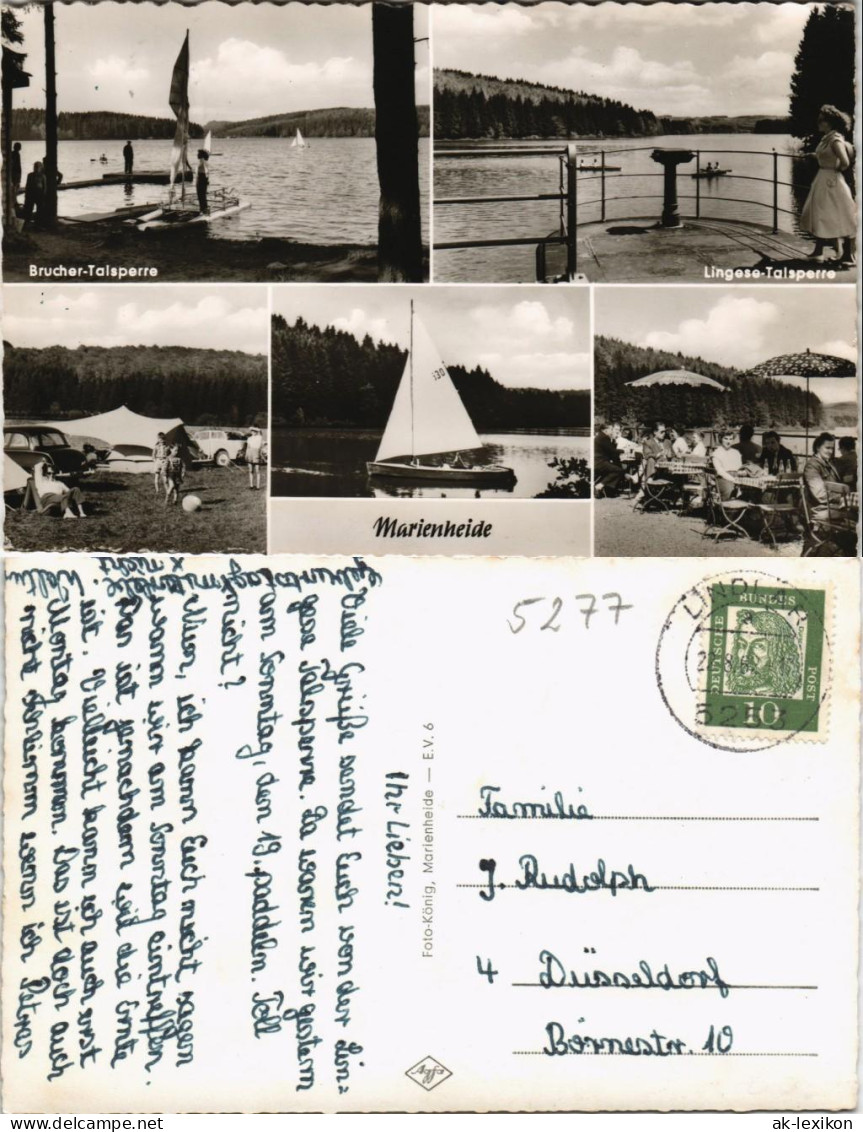 Brucher-Talsperre
Lingese-Talsperre
130
Marienheide
5277
LINDLAR
DEUTSCHE BUNDES POST
10
Foto-König, Marienheide — E.V. 6
Agfa
Familie
J. Rudolph
4 Düsseldorf
Börnestr. 10
Ihr Lieben!
Viele Grüße sendet Euch von der Lin=
gese Talsperre. Da waren wir gestern
am Sonntag, den 19. paddeln. Toll
nicht?
Nur, ich kann Euch nicht sagen
wann wir am Sonntag eintreffen.
Das ist jenachdem wie die Ernte
ist. Vielleicht kann ich auch erst
Montag kommen. Das ist doch auch
nicht schlimm wenn ich Petras
Geburtstag
x nicht
ak-lexikon